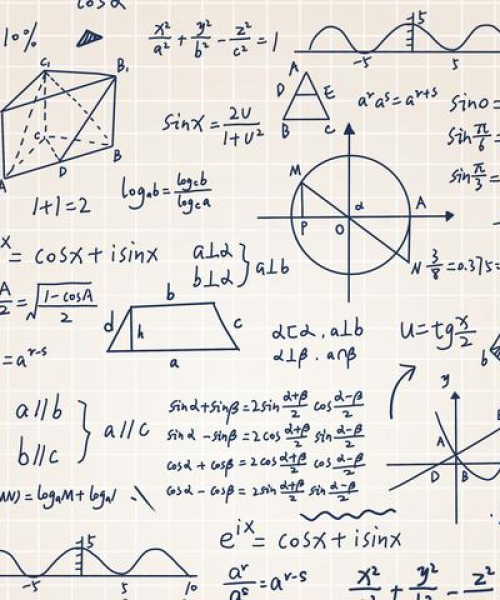 cosα
10%
x²/a² + y²/b² - z²/c² = 1
5
-5 5
C₁ B₁
C B
A D
sinx = 2U/1+U²
A
D E
B C
aʳaˢ=aʳ⁺ˢ
sin0 =
sin π/6 =
sin π/3 =
1+1=2
log_a b = log_c b/log_c a
M α A
P O
N
3/8 =0.375=
x = cosx + isinx
a⊥α
b⊥α } a⊥b
A/2 = √(1-cosA/2)
b
d h c
a
α⊏α . a⊥b
α⊥β . a∩β
U=tg x/2
b
=aʳ⁻ˢ
a//b
b//c } a//c
sinα+sinβ=2sin α+β/2 cos α-β/2
sinα -sinβ=2cos α+β/2 sin α-β/2
cosα + cosβ = 2cos α+β/2 cos α-β/2
cosα - cosβ = 2sin α+β/2 sin α-β/2
y
A
D B
MN) = log_a M + log_a N
eⁱˣ= cosx + isinx
5
-5 5 10
aʳ/aˢ =aʳ⁻ˢ
x²/a² + y²/b² - z²